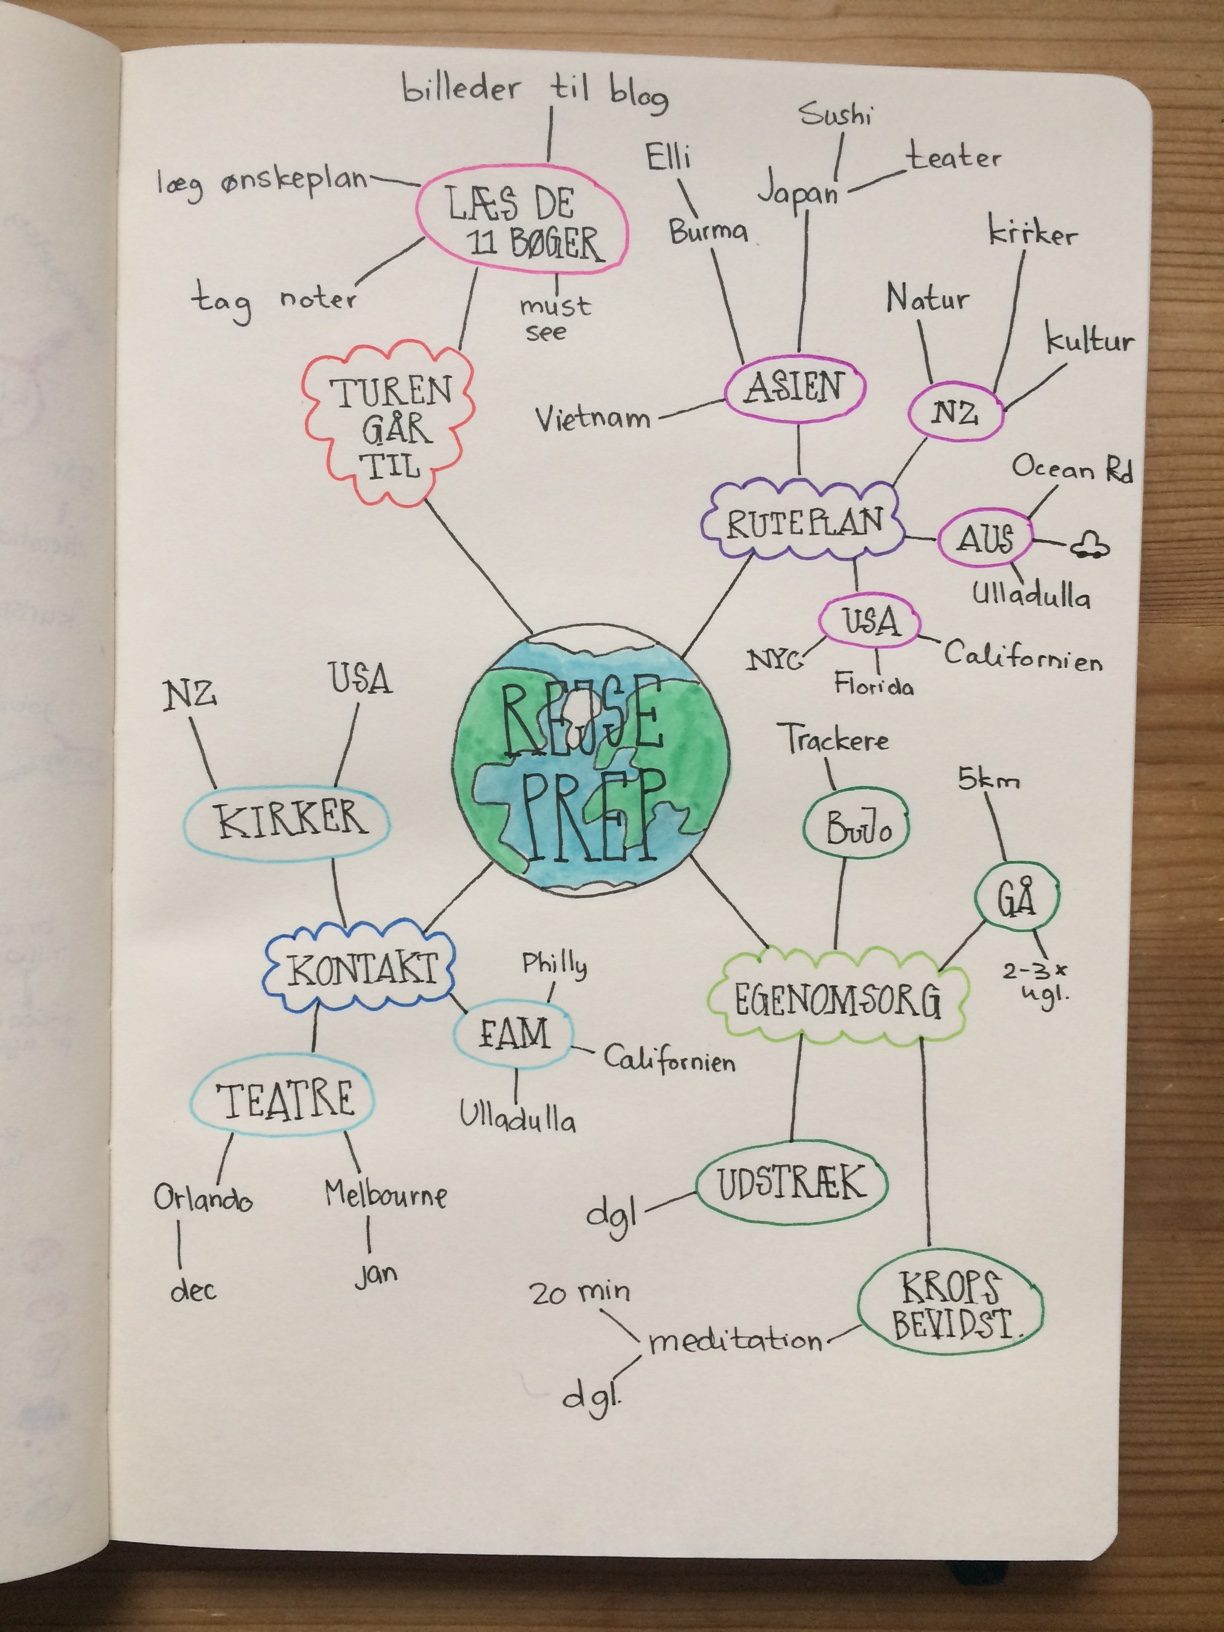 billeder til blog
læg ønskeplan
LÆS DE
11 BØGER
tag noter
must
see
TUREN
GÅR
TIL
Sushi
Elli
teater
Japan
Burma
kirker
Natur
kultur
ASIEN
NZ
Vietnam
Ocean Rd
RUTEPLAN
AUS
Ulladulla
USA
NYC
Californien
Florida
REJSE
PREP
NZ
USA
KIRKER
KONTAKT
Philly
FAM
Californien
Ulladulla
TEATRE
Orlando
Melbourne
dec
jan
Trackere
BuJo
5km
GÅ
2-3x
ugl.
EGENOMSORG
UDSTRÆK
dgl
KROPS
BEVIDST.
20 min
meditation
dgl.